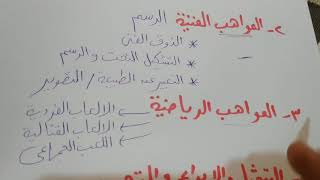 ٢- المواهب الفنية الرسم
* الذوق الفني
* التشكيل النحت والرسم
* التعبير عن الطبيعة / التصوير
٣- المواهب الرياضية
الالعاب الفردية
الالعاب القتالية
اللعب الجماعي